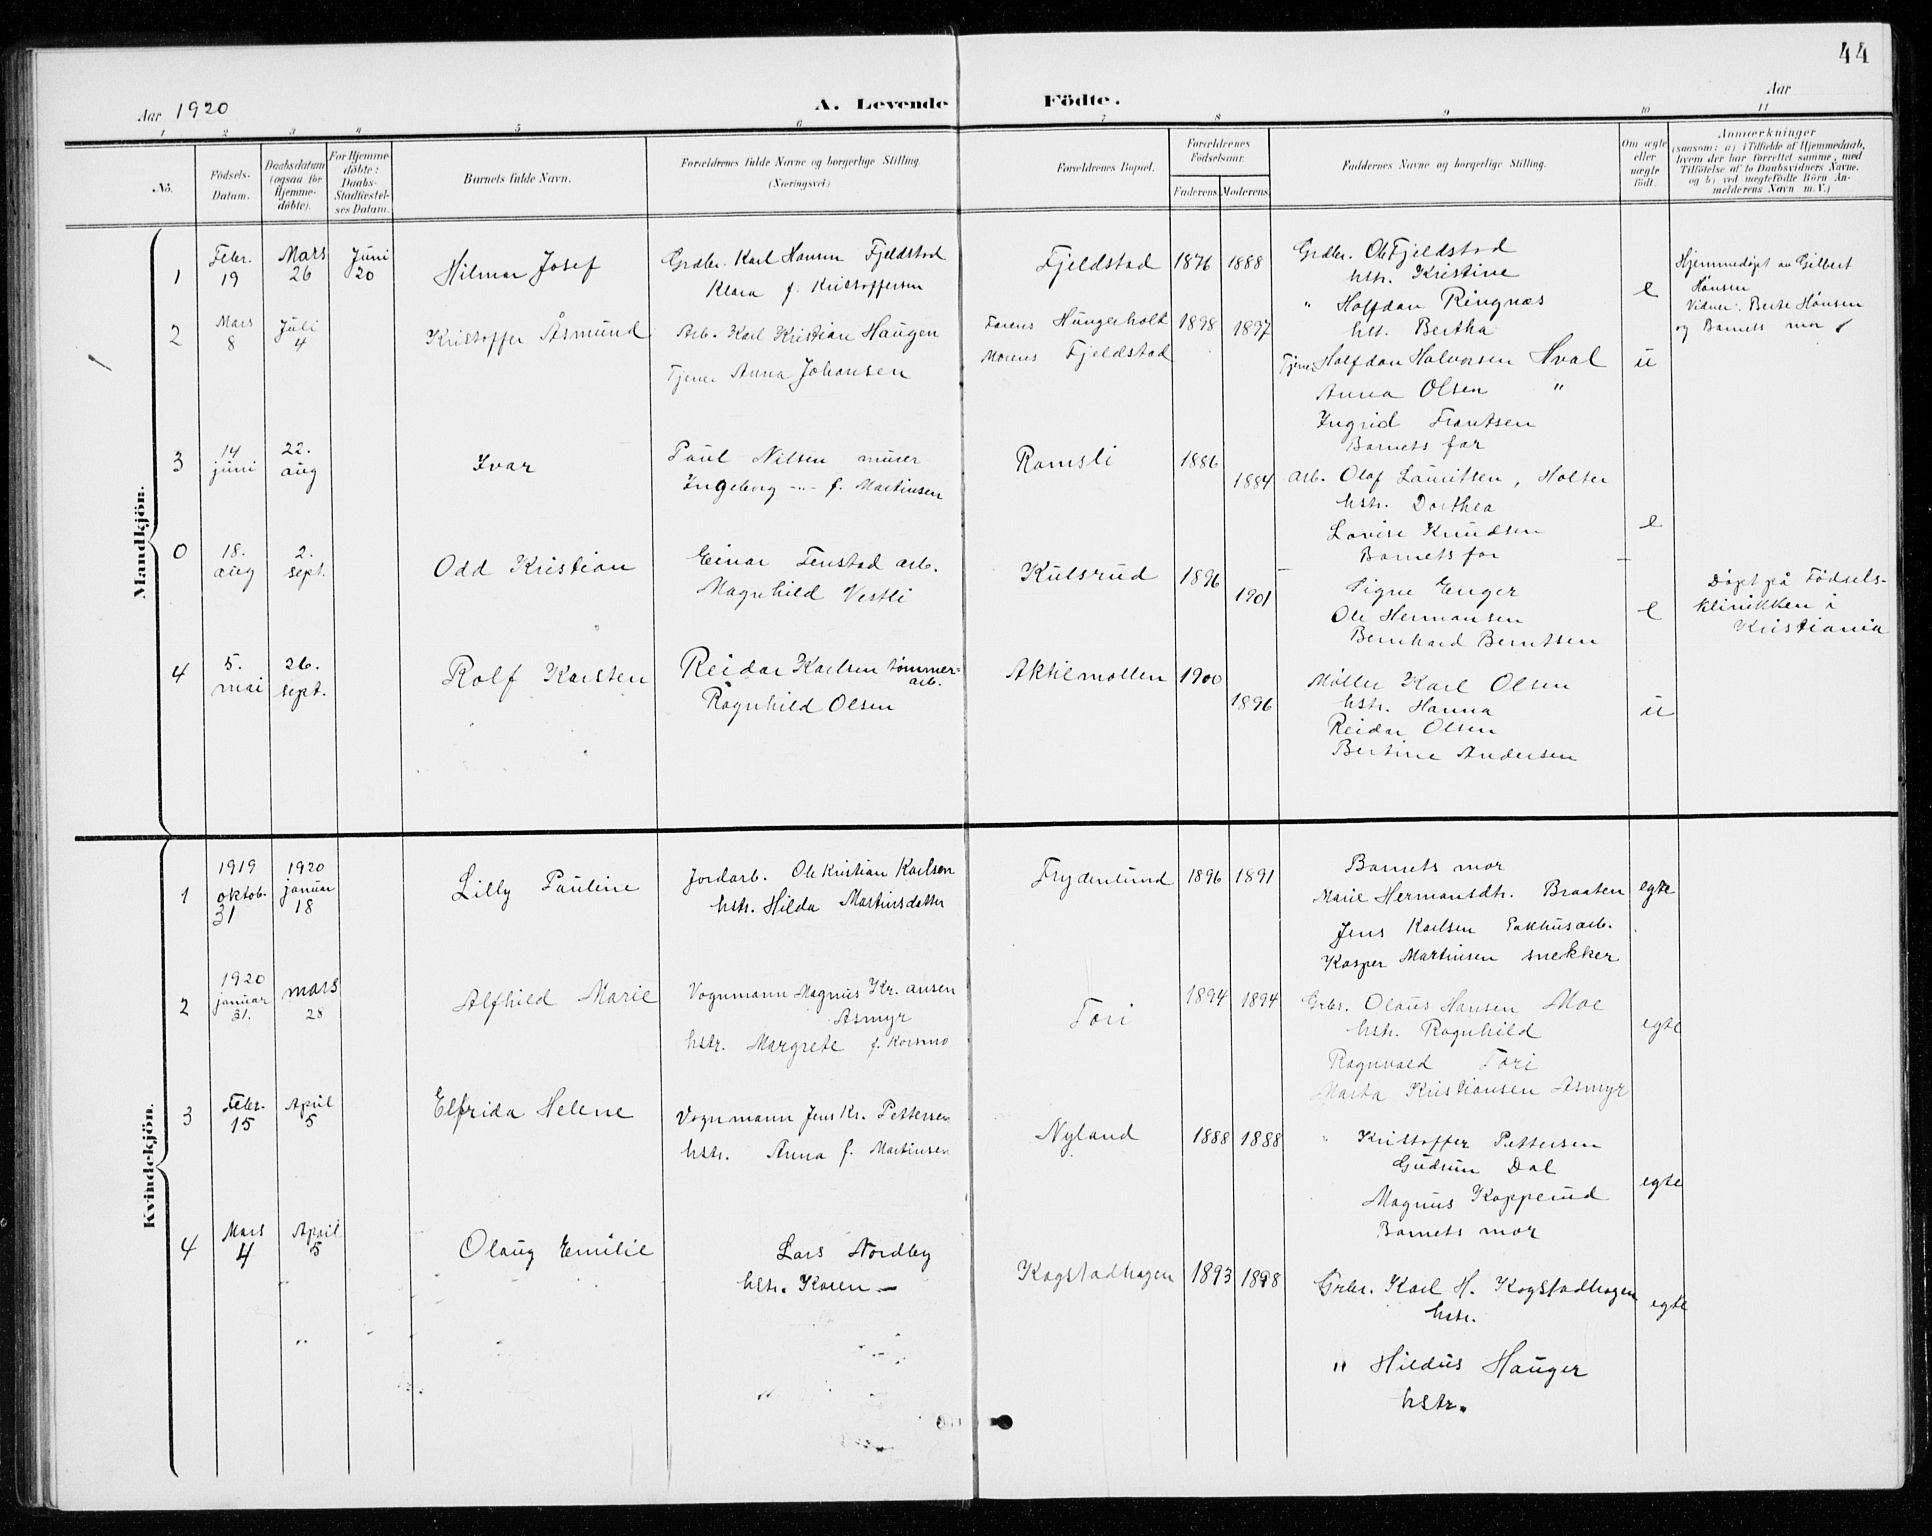 44
Aar 1920
A. Levende Födte.
Aar
1 2 3 4 5 6 7 8 9 10 11
No.
Födsels-Datum.
Daabsdatum (ogsaa for Hjemme-döbte).
For Hjemme-döbte: Daabs-Stadfæstel-ses Datum.
Barnets fulde Navn.
Forældrenes fulde Navne og borgerlige Stilling (Næringsvei.)
Forældrenes Bopæl.
Forældrenes Födselsaar.
Faderens. Moderens.
Faddernes Navne og borgerlige Stilling.
Om ægte eller uægte født.
Anmærkninger
(saasom: a) i Tilfælde af Hjemmedaab,
hvem der har forrettet samme, med
Tilföielse af to Daabsvidners Navne.
og b) ved uægtefödte Börn An-
melderens Navn m.V.)
Mandkjön.
1 Febr. 19 Mars 26 Juni 20 Hilmar Josef
Grdbr. Karl Hansen Fjeldstad
Klara f. Kristoffersen
Fjeldstad 1876 1888
Grdbr. Ole Fjeldstad
hstr. Kristine
" Halfdan Ringnæs
hst. Bertha
e
Hjemmedøpt av Gilbert
Hansen
Vidner: Berte Hansen
og Barnets mor
2 Mars 8 Juli 4 Kristoffer Åsmund
Arb. Karl Kristian Haugen
Tjener Anna Johansen
Farens Hungerholt 1898 1897
Morens Fjeldstad
Tjener Halfdan Halvorsen Hval
Anna Olsen "
Ingrid Frantsen
Barnets far
u
3 14 juni 22. aug Ivar
Paul Nilsen murer
Ingeborg -"- f. Martinsen
Ramsli 1886 1884
Arb. Olaf Lauritsen, Holter
hstr. Dorthea
Lovise Knudsen
Barnets far
e
0 18. aug 2. sept. Odd Kristian
Einar Fenstad arb.
Magnhild Vestli
Kulsrud 1896 1901
Signe Enger
Ole Hermansen
Bernhard Berntsen
e
Døpt på Fødsels-
klinikken i
Kristiania
4 5. mai 26. sept. Rolf Karsten
Reidar Karlsen tømmer-
arb.
Ragnhild Olsen
Aktiemøllen 1900 1896
Møller Karl Olsen
hstr. Hanna
Reidar Olsen
Bertine Andersen
u
Kvindekjön.
1 1919 oktob. 31 1920 januar 18 Lilly Pauline
Jordarb. Ole Kristian Karlsen
hstr. Hilda Martinsdatter
Frydenlund 1896 1891
Barnets mor
Marie Hermansdtr. Braaten
Jens Karlsen Pakhusarb.
Kasper Martinsen snekker
egte
2 1920 januar 31. mars 28 Alfhild Marie
Vognmann Magnus Kr.ansen
Asmyr
hstr. Margrete f. Korsmo
Tori 1894 1894
Grbr. Olaus Hansen Moe
hstr. Ragnhild
Ragnvald Tori
Marta Kristiansen Asmyr
egte
3 Febr. 15 April 5 Elfrida Helene
Vognmann Jens Kr. Pettersen
hstr. Anna f. Martinsen
Nyland 1888 1888
" Kristoffer Pettersen
Gudrun Dal
Magnus Kopperud
Barnets mor
egte
4 Mars 4 April 5 Olaug Emilie
Lars Nordby
hstr. Karen —
Kogstadhagen 1893 1898
Grbr. Karl H. Kogstadhagen
hstr.
" Hildus Hauger
hstr.
egte